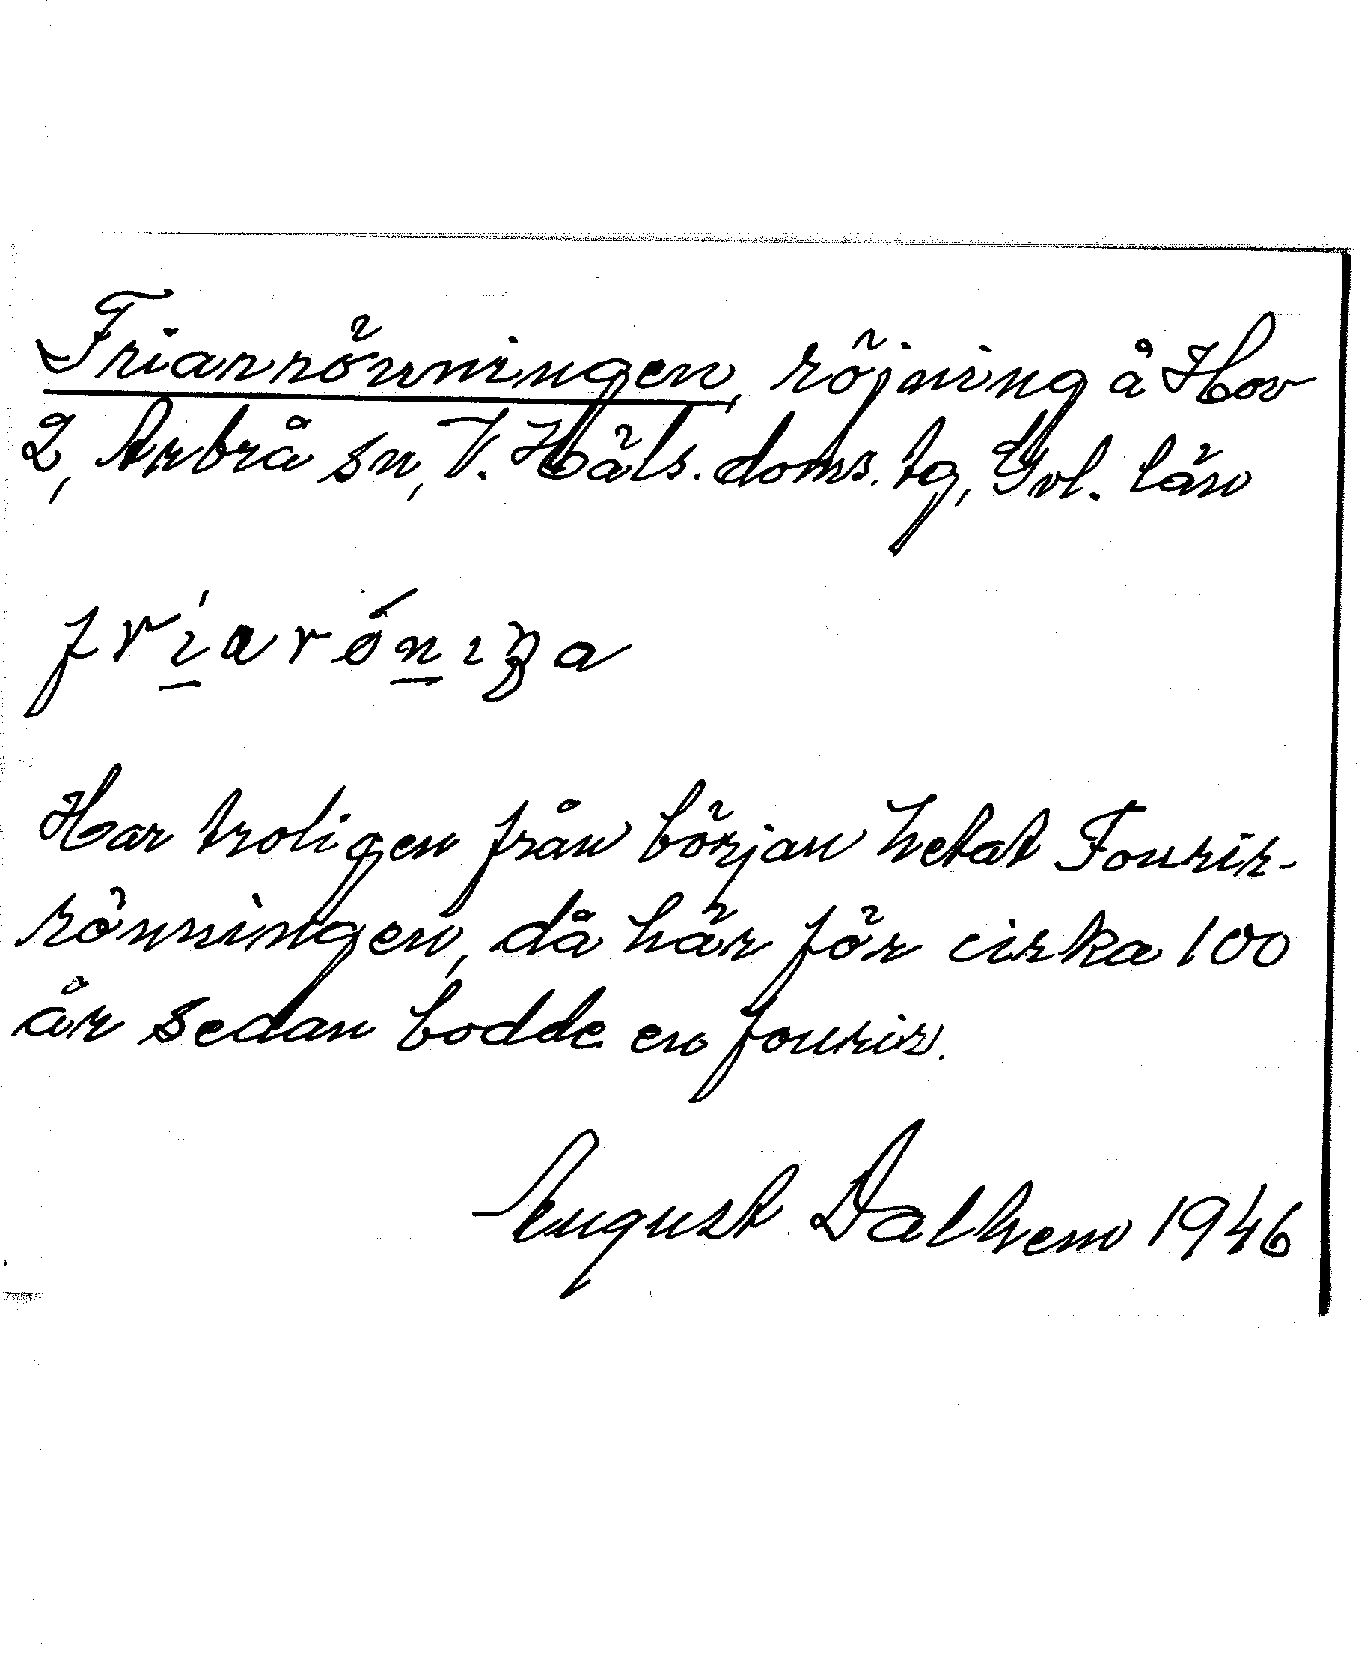 Friarrönningen, röjning å Hov
2, Arbrå sn, V. Häls. doms. tg, Gvl. län
frı̱́aróṉıŋa
Har troligen från början hetat Fourir-
rönningen, då här för cirka 100
år sedan bodde en fourir.
August Dalhem 1946